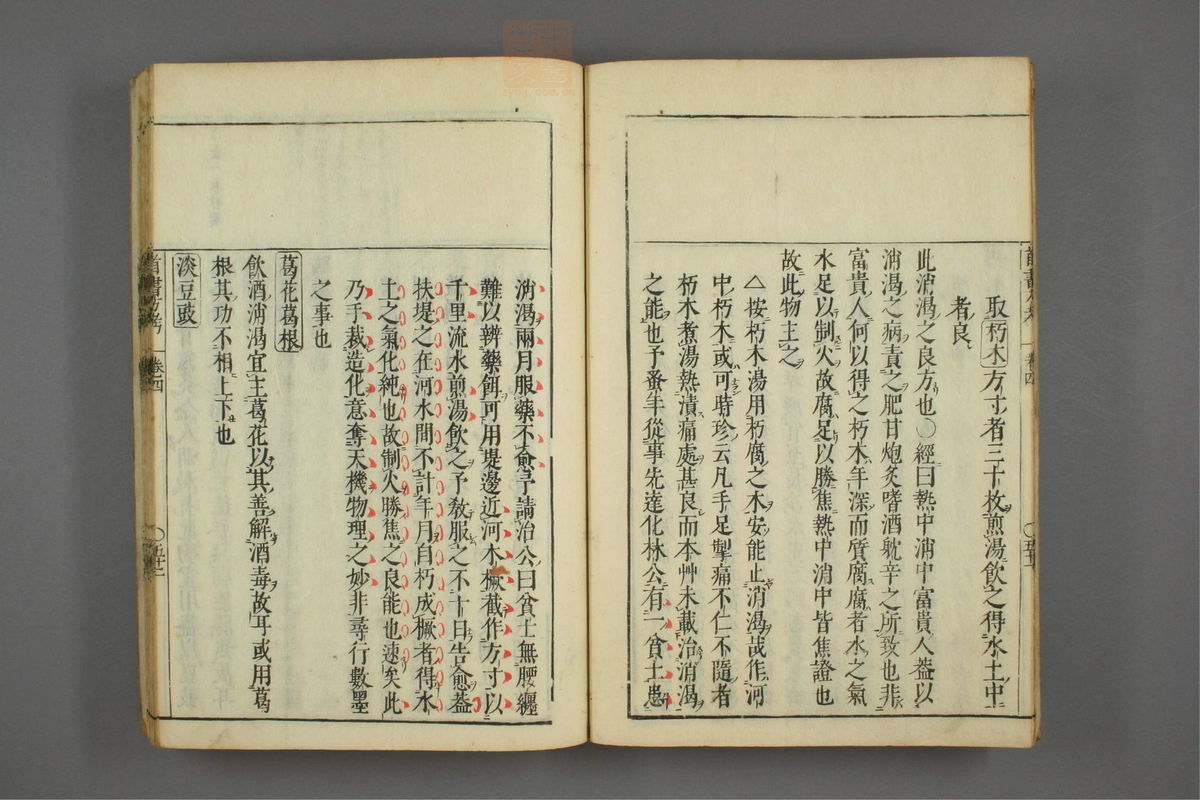 取朽木方寸者三十枚煎湯飲之得水土中
者良
此消渴之良方也○經曰熱中消中富貴人蓋以
消渴之病責之肥甘炮炙嗜酒耽辛之所致也非
富貴人何以得之朽木年深而質腐腐者水之氣
水足以制火故腐足以勝焦熱中消中皆焦證也
故此物主之
△按朽木湯用朽腐之木安能止消渴哉作河
中朽木或可時珍云凡手足掣痛不仁不隨者
朽木煮湯熱漬痛處甚良而本艸未載治消渴
之能也予蚤年從事先達化林公有一貧士患
消渴兩月服藥不愈予請治公曰貧士無腰纏
難以辨藥餌可用堤邊近河木橛截作方寸以
千里流水煎湯飲之予教服之不十日告愈蓋
扶堤之在河水間不計年月自朽成橛者得水
土之氣化純也故制火勝焦之良能也速矣此
乃手裁造化意奪天機物理之妙非尋行數墨
之事也
葛花葛根
飲酒消渴宜主葛花以其善解酒毒故耳或用葛
根其功不相上下也
淡豆豉
卷四